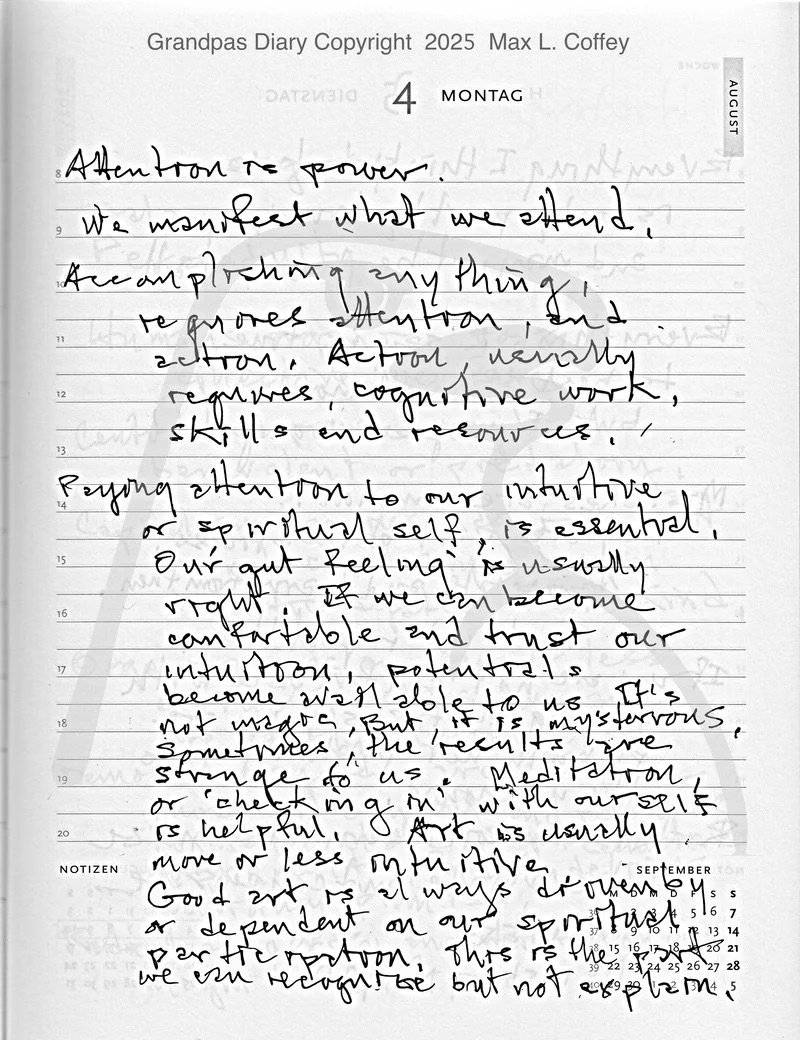 Grandpas Diary Copyright 2025 Max L. Coffey
4 MONTAG
AUGUST
8 Attention is power.
9 We manifest what we attend.
10 Accomplishing any thing,
requires attention, and
11 action. Action, usually
12 requires, cognitive work,
skills and resources.
13
14 Paying attention to our intuitive
or spiritual self, is essential.
15 Our 'gut feeling' is usually
16 right. If we can become
comfortable and trust our
17 intuition, potentials
become available to us. It's
18 not magic, But it is mysterious.
Sometimes, the results are
19 strange to us. Meditation,
or 'checking in' with ourself
20 is helpful. Art is usually
NOTIZEN more or less intuitive.
SEPTEMBER
Good art is always driven by
or dependent on our spiritual
participation. This is the part
we can recognise but not explain.
M D M D F S S
36 3 4 5 6 7
37 8 9 10 11 12 13 14
38 15 16 17 18 19 20 21
39 22 23 24 25 26 27 28
40 29 30 1 2 3 4 5